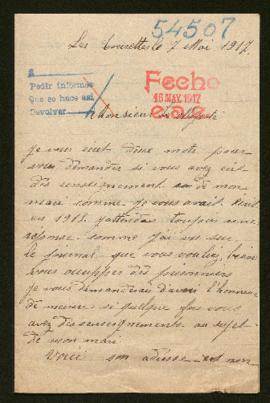 54507
Les Tourettes le 7 Mai 1917
A
Pedir informes
Que se hace así
Devolver
Fecho
16 MAY. 1917
Monsieur
je vous écrit deux mots pour
vous demander si vous avez eut
des renseignement de mon
mari comme je vous avait écrit
en 1915 j'attendai toujours une
réponse comme j'ai vu sur
le journal que vous vouliez bien
vous occupper des prisonniers
je vous demanderai d'avoir l'honneur
de savoir si quelque fois vous
avez des renseignements au sujet
de mon mari
Voici son adresse et nom